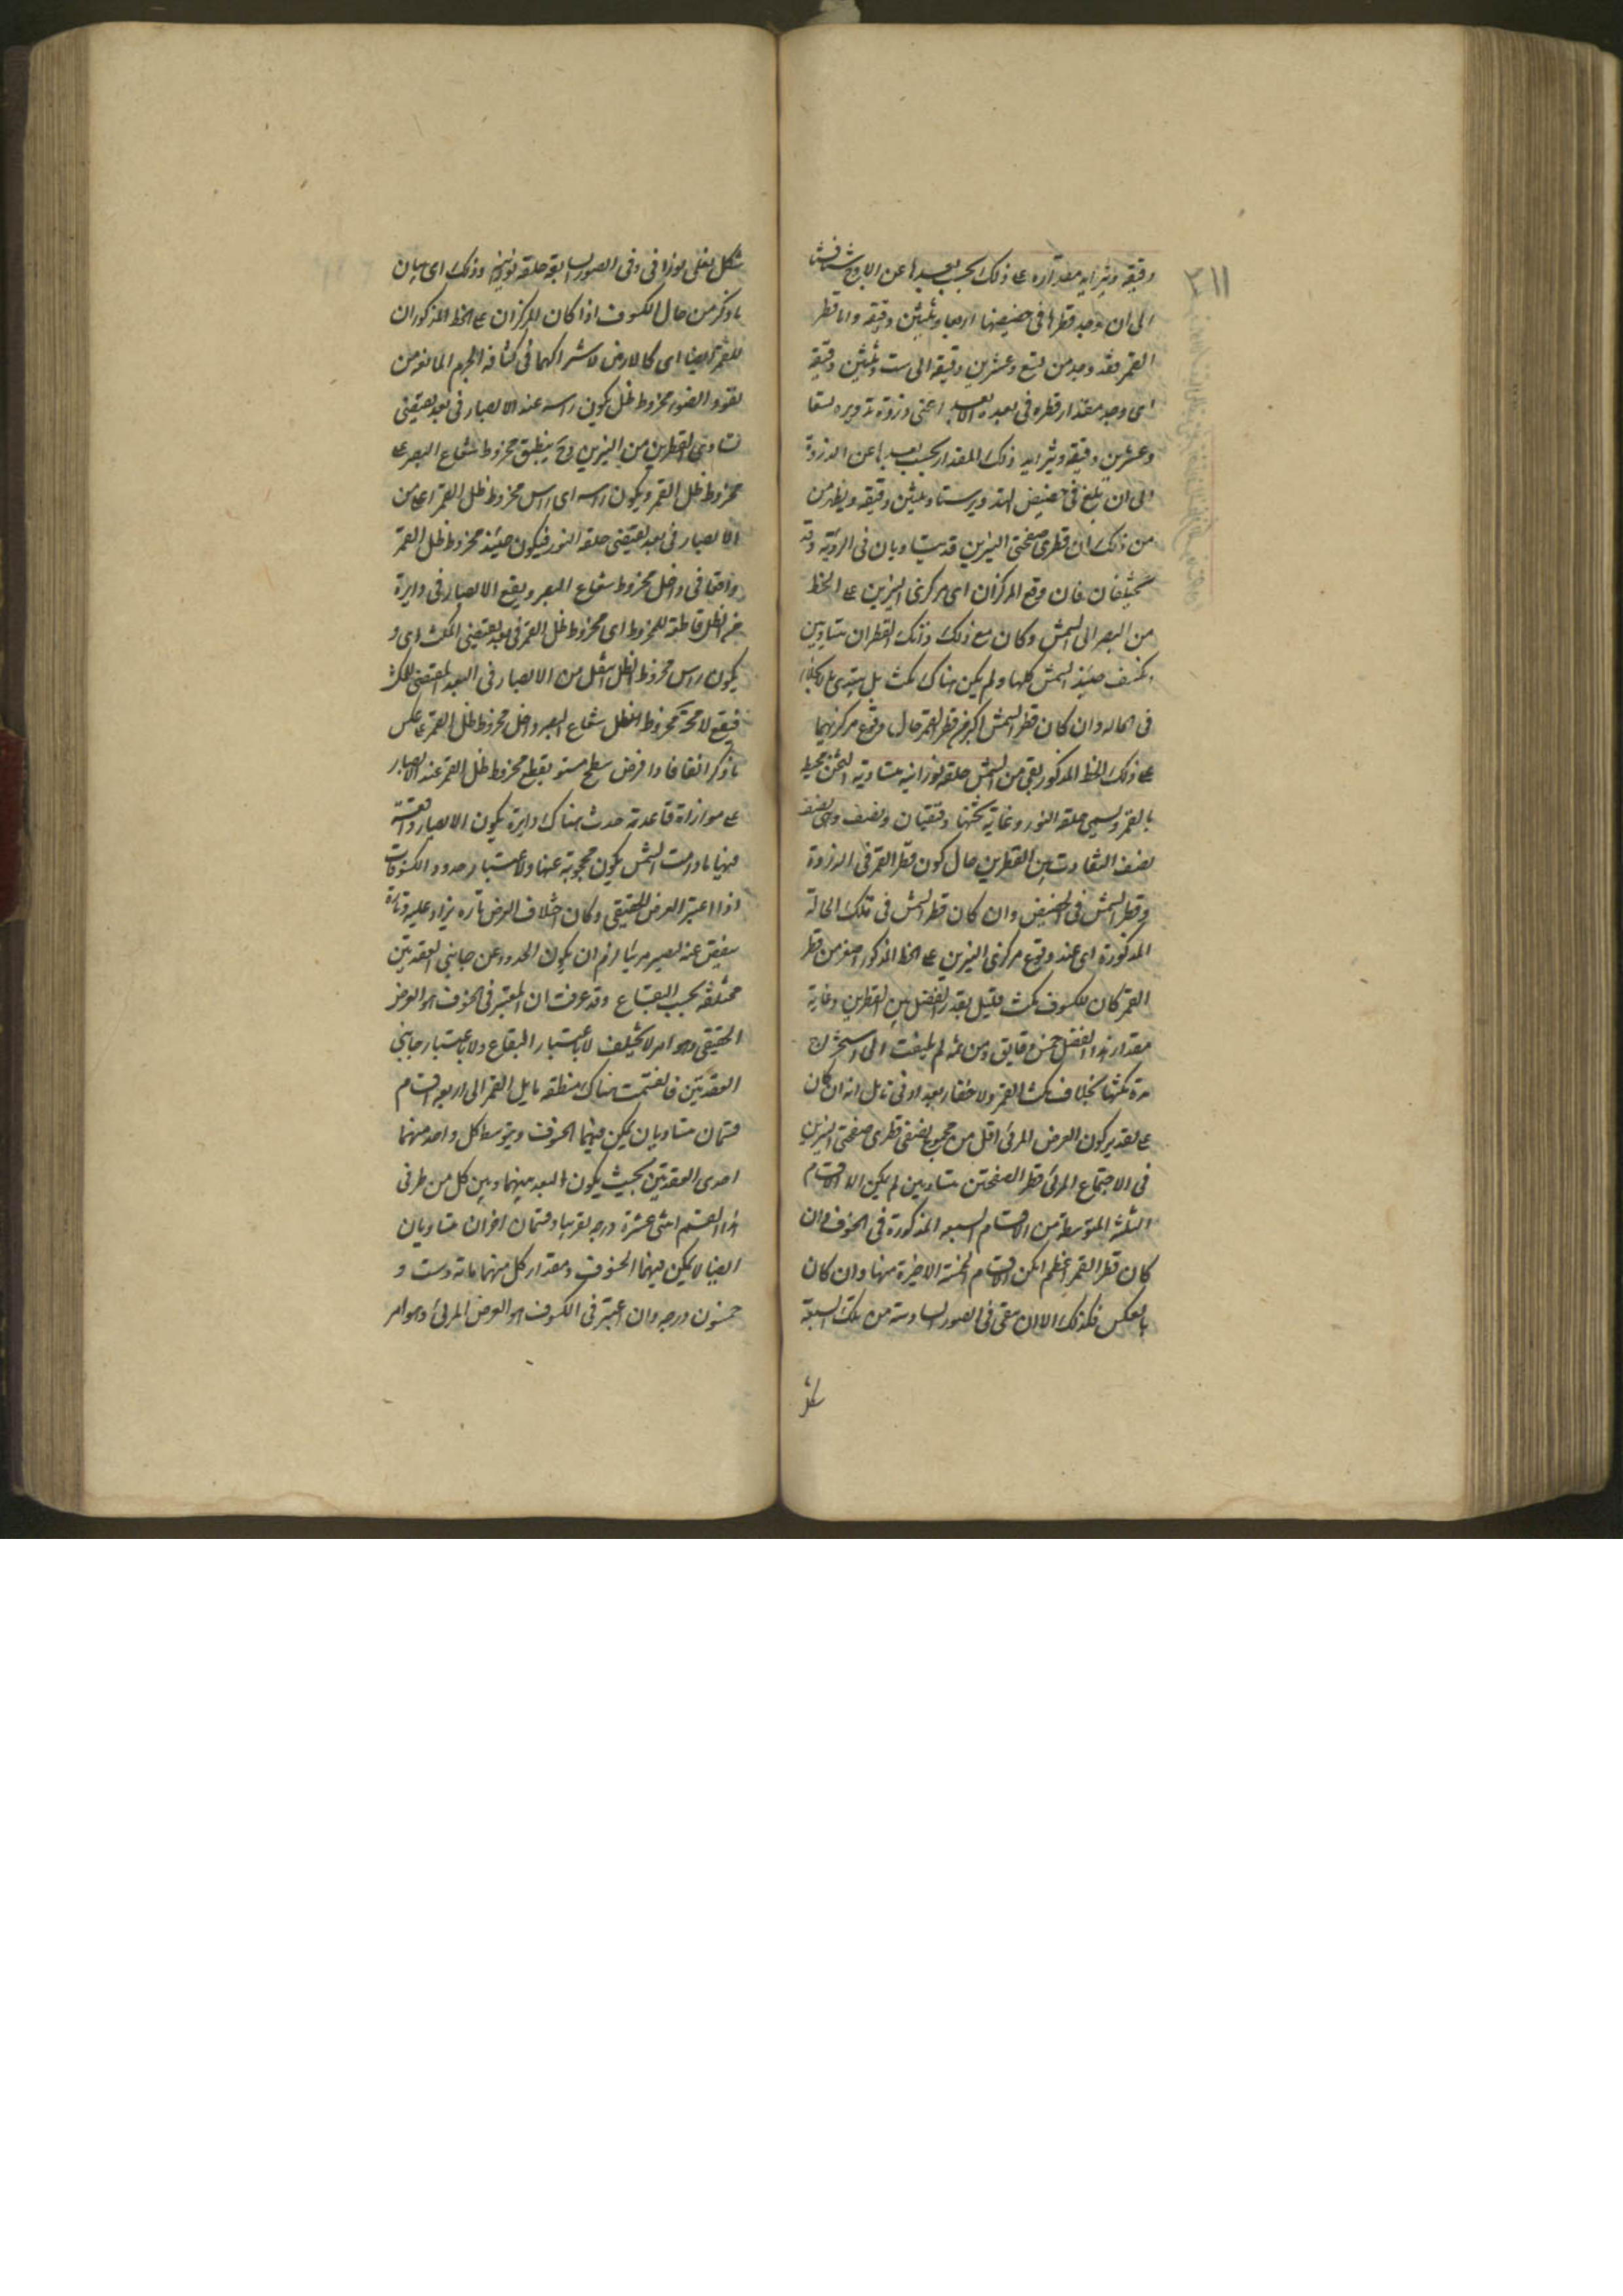 دقيقه ويتزايد مقداره على ذلك بحسب بعدها عن الاوج شيئا فشيئا
الى ان وجد قطرها فى حضيضها اربعا وثلثين دقيقه واما قطر
القمر فقد وجد من تسع وعشرين دقيقه الى ست وثلثين دقيقه
اى وجد مقدار قطره فى بعده الابعد اعنى ذروة تدويره تسعا
وعشرين دقيقه ويتزايد ذلك المقدار بحسب بعدها عن الذروة
الى ان تبلغ فى حضيض التدوير ستا وثلثين دقيقه ويظهر من
من ذلك ان قطرى صفحتى النيرين قد يتساويان فى الرؤية وقد
يختلفان فان وقع المركزان اى مركزى النيرين على الخط
من البصر الى الشمس وكان مع ذلك ذانك القطران متساويين
انكسف حينئذ الشمس كلها ولم يكن هناك مكث بل يبتدى بالانجلاء
فى الحال وان كان قطر الشمس اكبر من قطر القمر حال وقوع مركزيهما
على ذلك الخط المذكور بقى من الشمس حلقه نورانيه متساوية الثخن تحيط
بالقمر ويسمى حلقه النور وغاية ثخنها دقيقتان ونصف وهى نصف
نصف التفاوت بين القطرين حال كون قطر القمر فى الذروة
وقطر الشمس فى الحضيض وان كان قطر الشمس فى تلك الحالة
المذكورة اى عند وقوع مركزى النيرين على الخط المذكور اصغر من قطر
القمر كان للكسوف مكث قليل بقدر الفضل بين القطرين وغاية
مقدار هذا الفضل خمس دقايق ومن ثمه لم يلتفت الى استخراج
مدة مكثها بخلاف مكث القمر ولا خفاء بعد ادنى تامل انه ان كان
على تقدير كون العرض المرئى اقل من مجموع نصفى قطرى صفحتى النيرين
فى الاجتماع المرئى قطر الصفحتين متساويين لم يكن الا الاقسام
الثلثه المتوسطة من الاقسام السبعه المذكورة فى الخسوف وان
كان قطر القمر اعظم امكن الاقسام الخمسة الاخيرة منها وان كان
بالعكس فكذلك الا ان بقى فى الصورة السادسة من تلك السبعة
شكل
شكل نعلى نورانى وفى الصورة السابعه حلقه نورانيه وذلك اى بيان
ما ذكر من حال الكسوف اذا كان المركزان على الخط المذكور ان
للقمر ايضا اى كالارض لاشتراكهما فى كثافه الجرم المانعه من
نفوذ الضوء مخروط ظل يكون راسه عند الابصار فى بعد يقتضى
تساوى القطرين من النيرين فح ينطبق مخروط شعاع البصر على
مخروط ظل القمر ويكون راسه اى راس مخروط ظل القمر اعلى من
الابصار فى بعد يقتضى حلقه النور فيكون حينئذ مخروط ظل القمر
واقعا فى داخل مخروط شعاع البصر ويقع الابصار فى دايرة
من الظل قاطعة للمخروط اى مخروط ظل القمر فى بعد يقتضى المكث اى و
يكون راس مخروط الظل اسفل من الابصار فى البعد المقتضى للمكث
فيقع لا محة مخروط شعاع البصر داخل مخروط ظل القمر على عكس
ما ذكر انفا فاذا فرض سطح مستو يقطع مخروط ظل القمر عند الابصار
على موازاة قاعدته حدث هناك دايرة يكون الابصار واقعة
فيها ما دامت الشمس يكون محجوبة عنها ولاعتبار حدود الكسوفات
اذا اعتبر العرض الحقيقى وكان اختلاف العرض تارة يزاد عليه وتارة
ينقص عنه ليصير مرئيا لزم ان يكون الحدود عن جانبى العقدتين
مختلفه بحسب البقاع وقد عرفت ان المعتبر فى الخسوف هو العرض
الحقيقى وهو امر لا يختلف لا باعتبار البقاع ولا باعتبار جانبى
العقدتين فانقسمت هناك منطقه مايل القمر الى اربعه اقسام
قسمان متساويان يمكن فيهما الخسوف ويتوسط كل واحد منهما
احدى العقدتين بحيث يكون البعد بينهما وبين كل من طرفى
هذا القسم اثنى عشرة درجه تقريبا وقسمان اخران متساويان
ايضا لا يمكن فيهما الخسوف ومقدار كل منهما مائه وست و
خمسون درجه وان اعتبر فى الكسوف هو العرض المرئى وهو امر